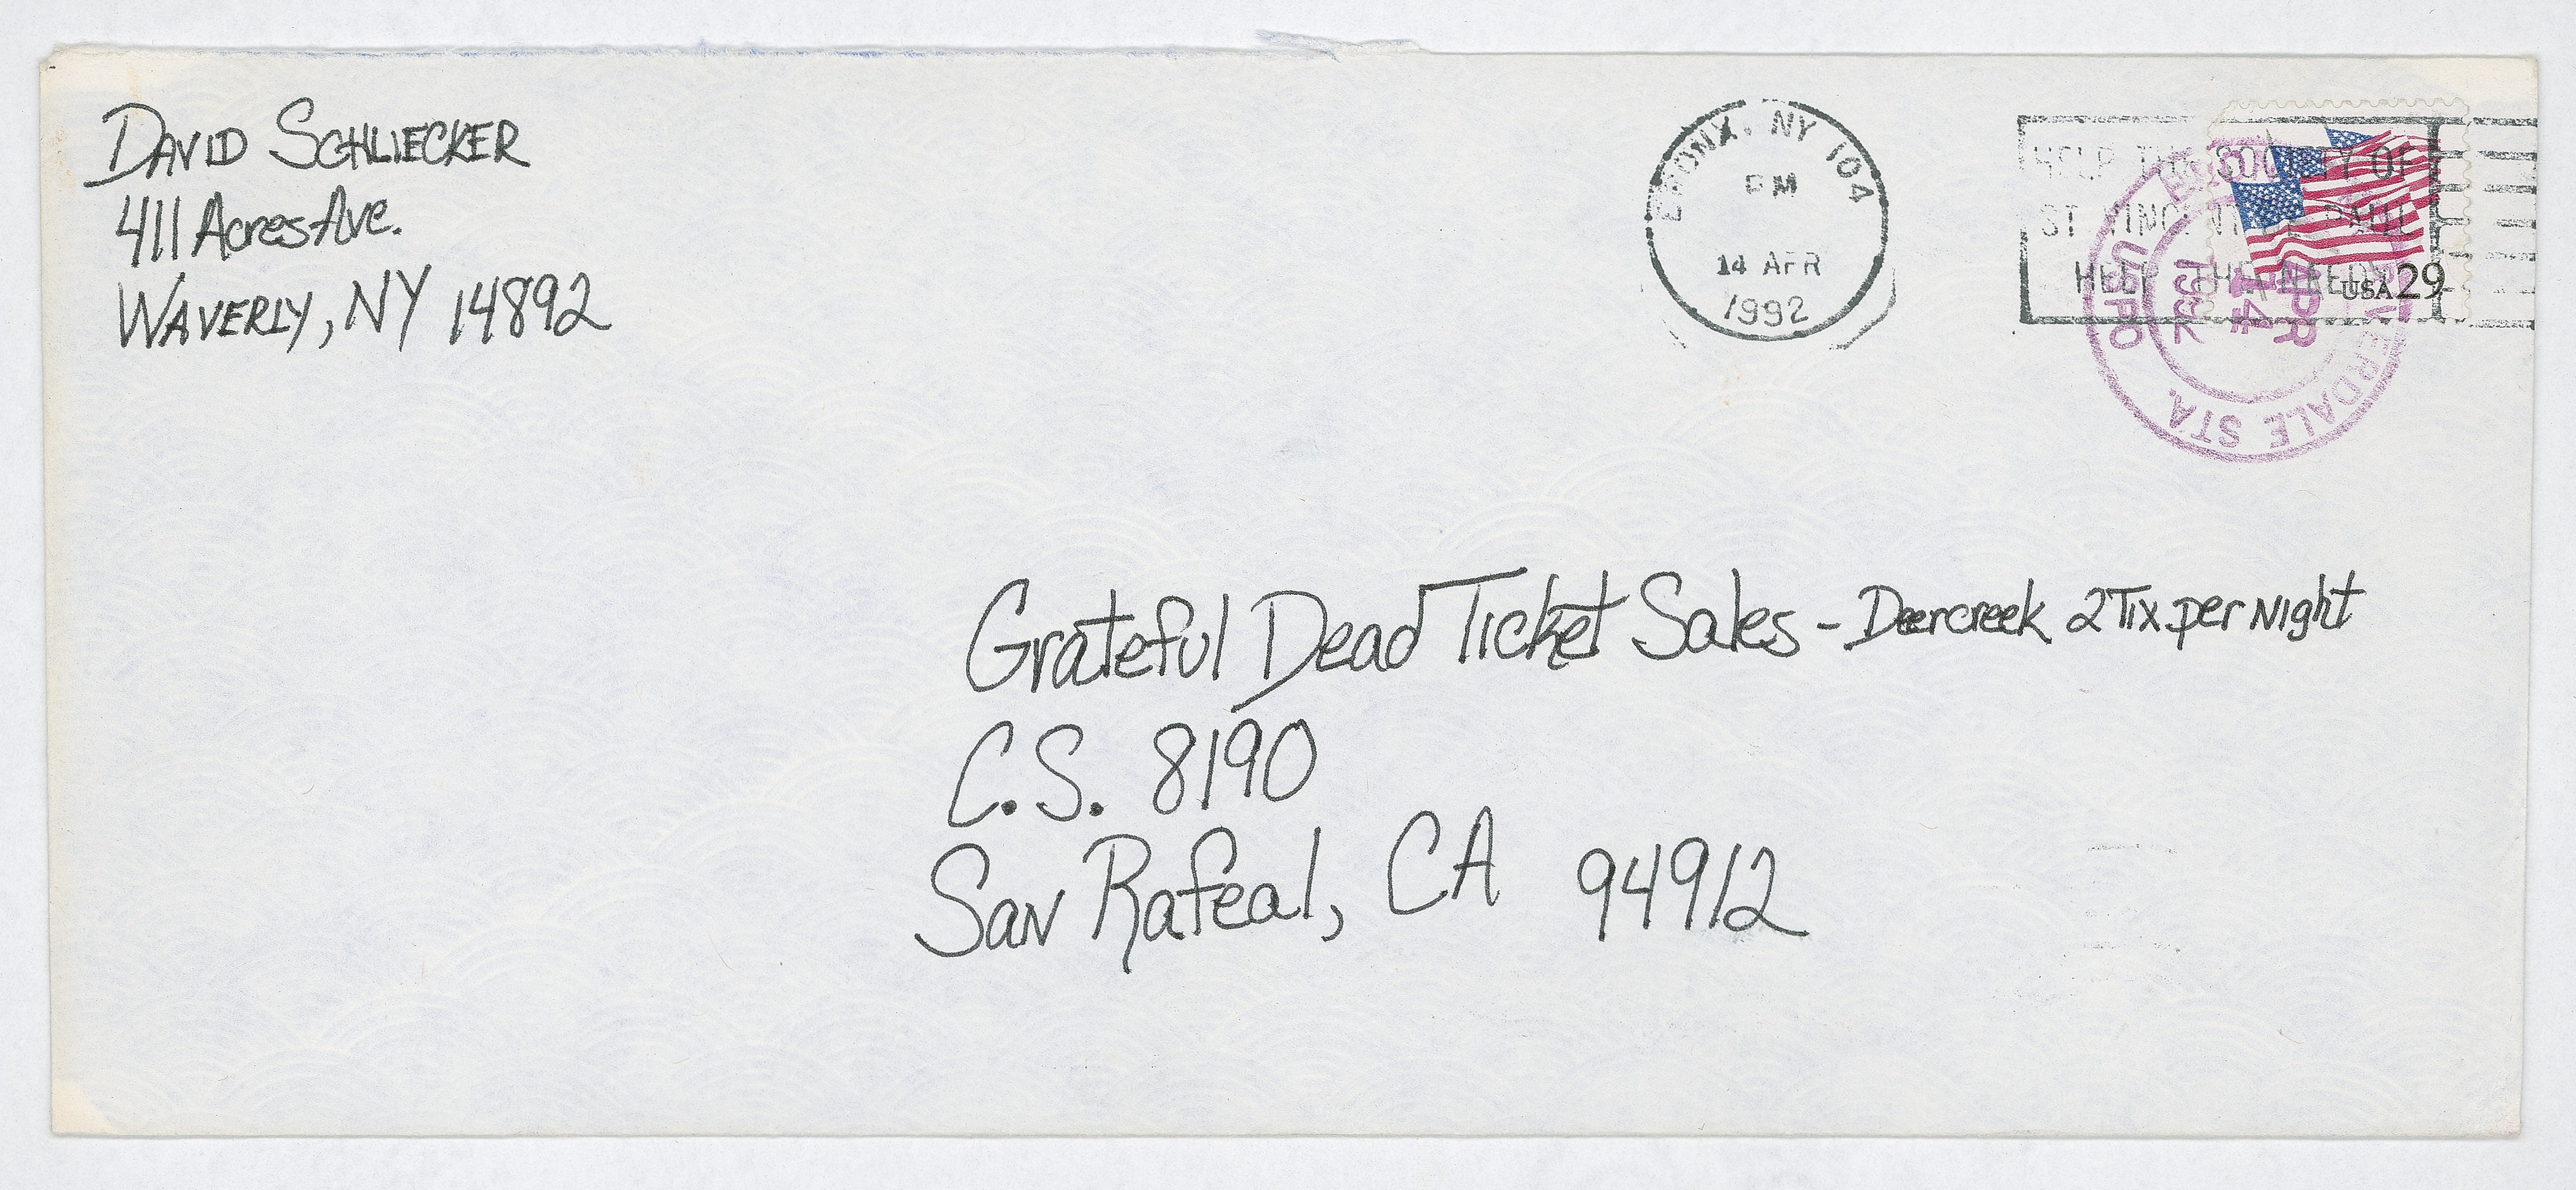 DAVID SCHLIECKER
411 Acres Ave.
WAVERLY, NY 14892
BRONX, NY 104
PM
14 APR
1992
HELP THE SOCIETY OF
ST VINCENT DE PAUL
HELP THE NEEDY
USA 29
RIVERDALE STA.
USPO
APR
14
1992
Grateful Dead Ticket Sales - Deercreek 2 Tix per Night
C.S. 8190
San Rafeal, CA 94912